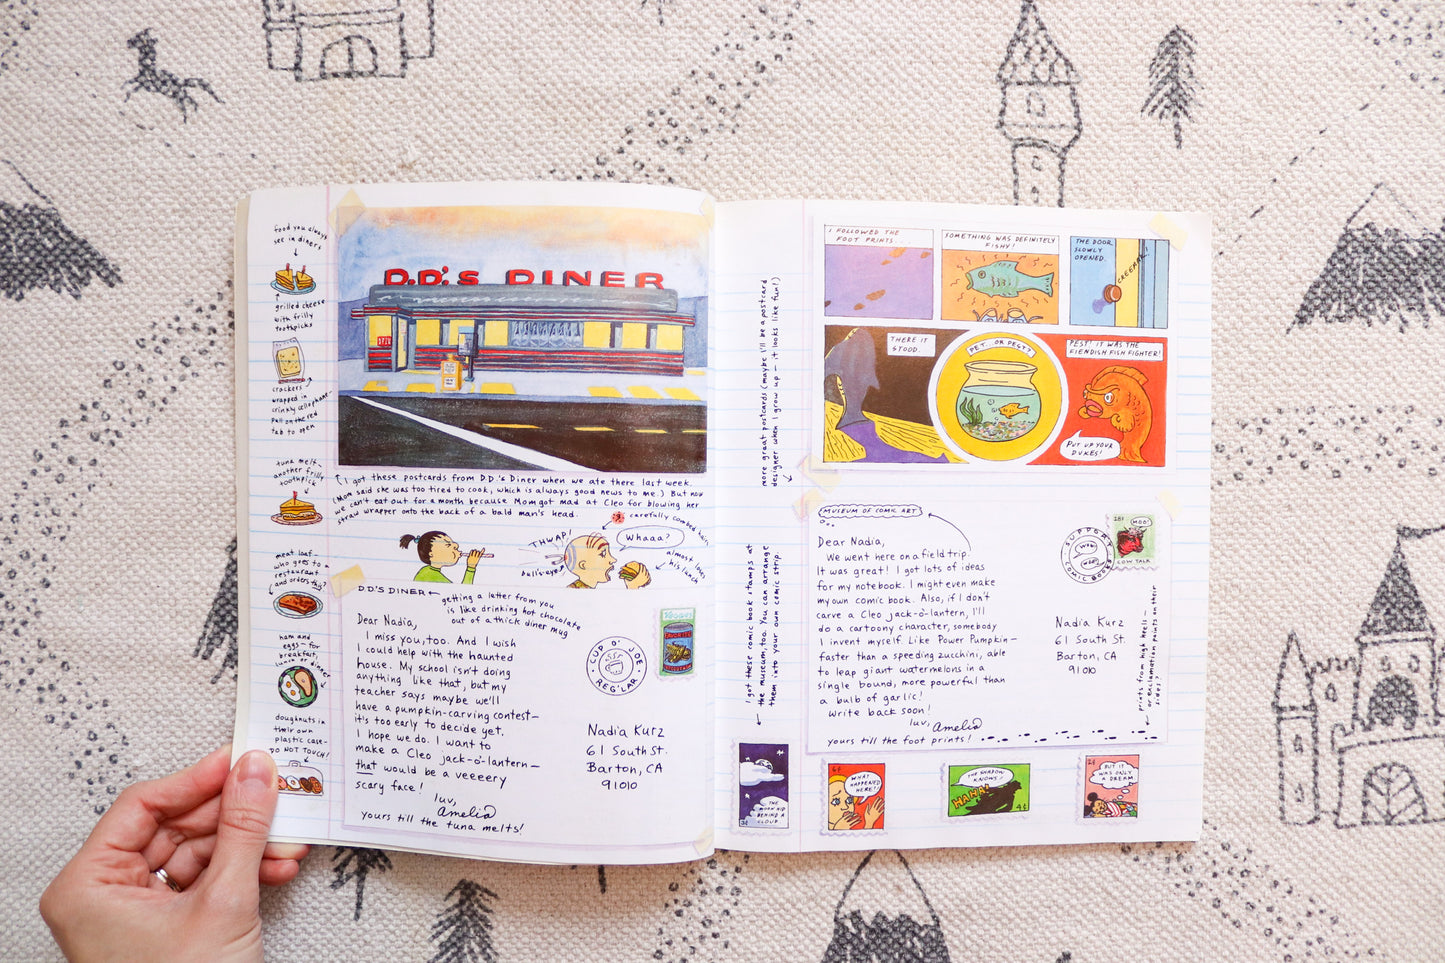 food you always
see in diners
grilled cheese
with frilly
toothpicks
crackers
wrapped in
crinkly cellophane-
pull on the red
tab to open
tuna melt-
another frilly
toothpick
meat loaf-
who goes to a
restaurant
and orders this?
ham and
eggs- for
breakfast,
lunch or dinner
doughnuts in
their own
plastic case-
DO NOT TOUCH!
D.D.'S DINER
I got these postcards from D.D.'s Diner when we ate there last week.
(Mom said she was too tired to cook, which is always good news to me.) But now
we can't eat out for a month because Mom got mad at Cleo for blowing her
straw wrapper onto the back of a bald man's head.
carefully combed hair
THWAP!
bull's-eye
Whaaa?
almost loses
his lunch
D.D.'S DINER
getting a letter from you
is like drinking hot chocolate
out of a thick diner mug
Dear Nadia,
I miss you, too. And I wish
I could help with the haunted
house. My school isn't doing
anything like that, but my
teacher says maybe we'll
have a pumpkin-carving contest-
it's too early to decide yet.
I hope we do. I want to
make a Cleo jack-o'-lantern-
that would be a veeeery
scary face!
luv,
Amelia
yours till the tuna melts!
CUP O' JOE
REG'LAR
Nadia Kurz
61 South St.
Barton, CA
91010
more great postcards (maybe I'll be a postcard
designer when I grow up - it looks like fun!)
I FOLLOWED THE
FOOT PRINTS...
SOMETHING WAS DEFINITELY
FISHY!
THE DOOR
SLOWLY
OPENED.
CREEEAK
THERE IT
STOOD.
PET... OR PEST?
PEST! IT WAS THE
FIENDISH FISH FIGHTER!
PUT UP YOUR
DUKES!
I got these comic book stamps at
the museum, too. You can arrange
them into your own comic strip.
MUSEUM OF COMIC ART
Dear Nadia,
We went here on a field trip.
It was great! I got lots of ideas
for my notebook. I might even make
my own comic book. Also, if I don't
carve a Cleo jack-o'-lantern, I'll
do a cartoony character, somebody
I invent myself. Like Power Pumpkin-
faster than a speeding zucchini, able
to leap giant watermelons in a
single bound, more powerful than
a bulb of garlic!
Write back soon!
luv, Amelia
yours till the foot prints!
SUPPORT
COMIC BOOKS
MOO!
COW TALK
Nadia Kurz
61 South St.
Barton, CA
91010
prints from high heels-
or exclamation points on their
sides?
THE
MOON HID
BEHIND A
CLOUD.
WHAT
HAPPENED
HERE?!
THE SHADOW
KNOWS!
HAHA!
BUT IT
WAS ONLY
A DREAM